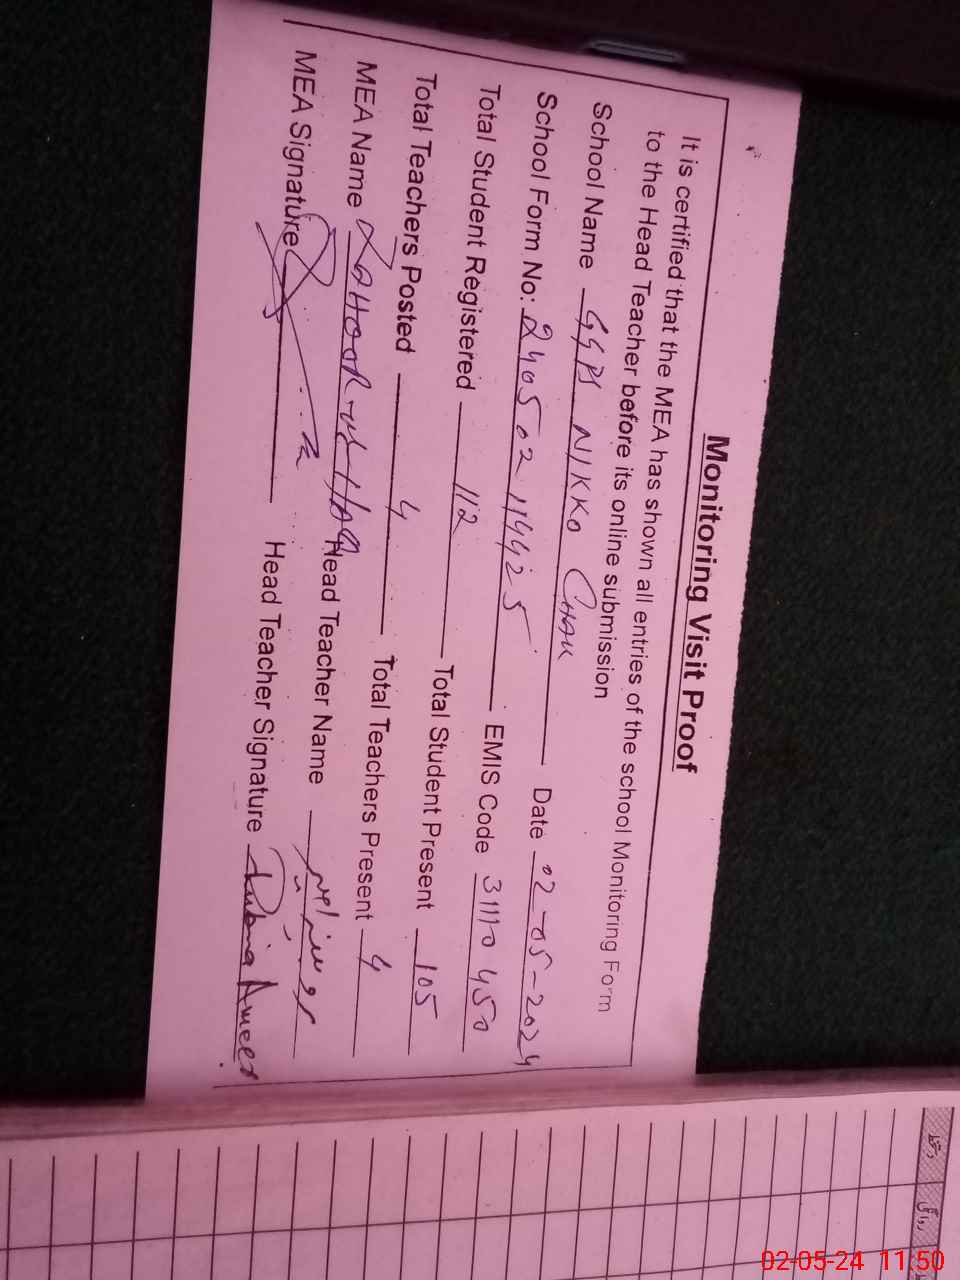 Monitoring Visit Proof
It is certified that the MEA has shown all entries of the school Monitoring Form
to the Head Teacher before its online submission
School Name GGPS NIKKO CHAK Date 02-05-2024
School Form No: 240502114425 EMIS Code 31110450
Total Student Registered 112 Total Student Present 105
Total Teachers Posted 4 Total Teachers Present 4
MEA Name ZAHOOR-ul-Haq Head Teacher Name روبینہ امیر
MEA Signature Head Teacher Signature Rubina Ameer
02-05-24 11:50